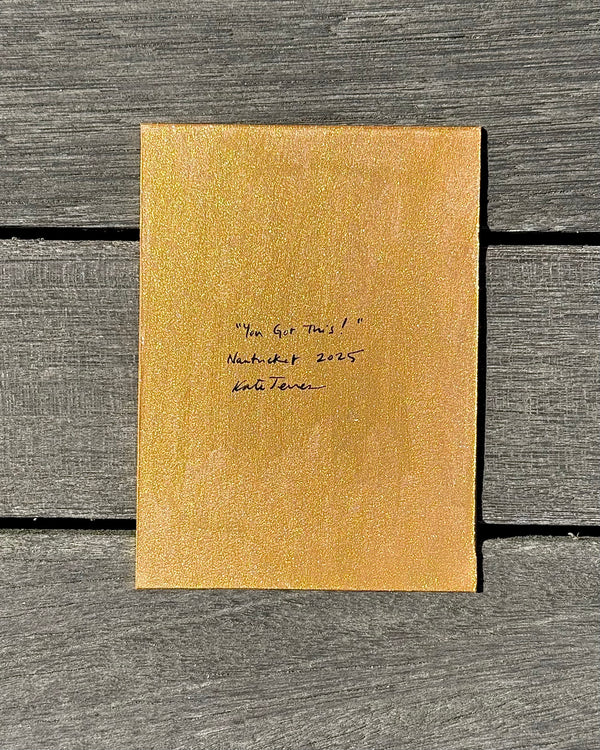 "You Got This!"
Nantucket 2025
Kate